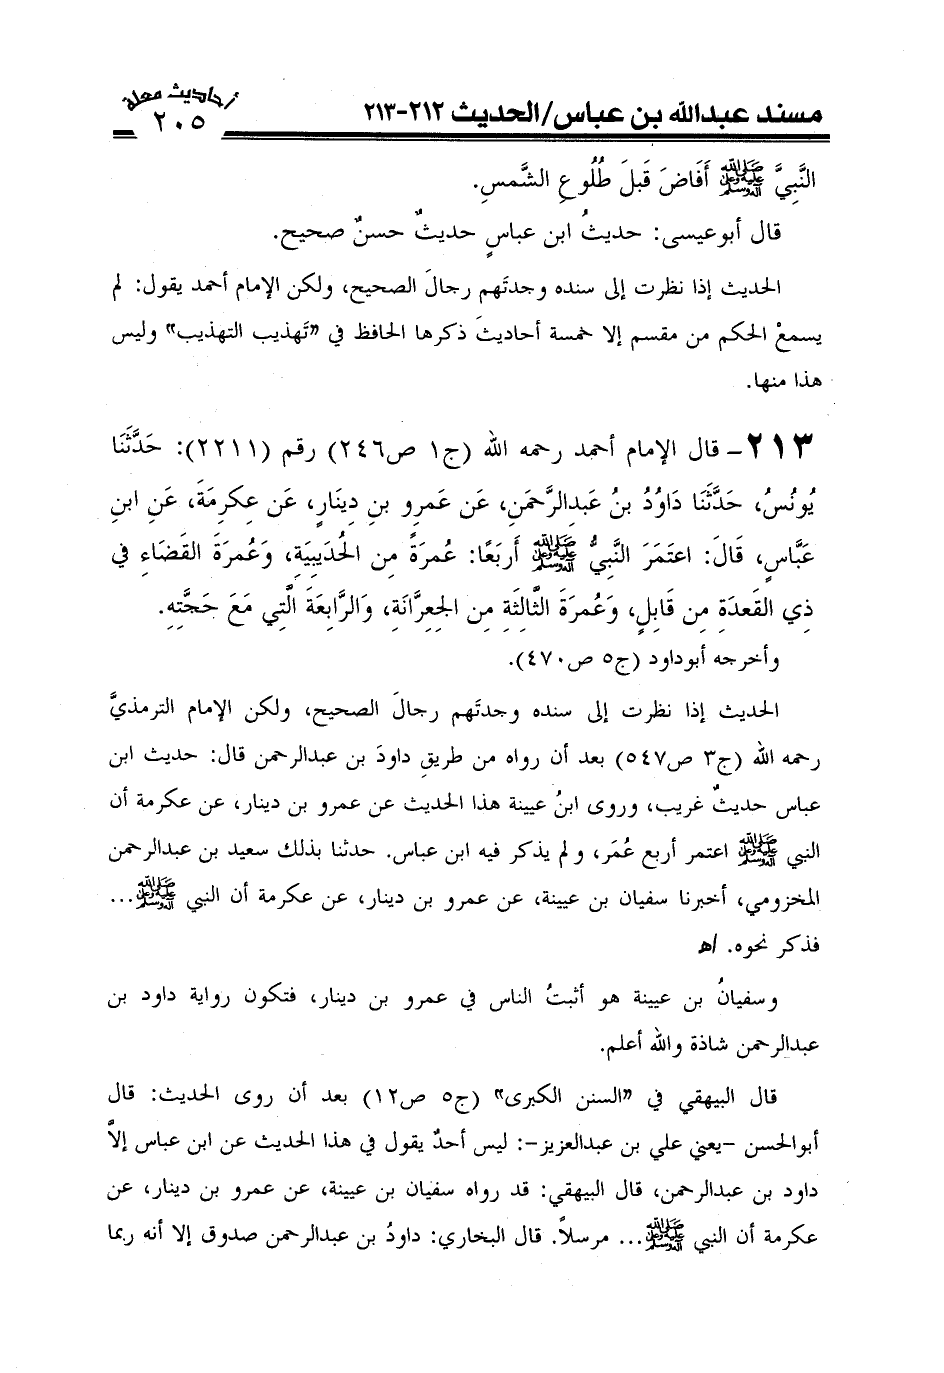 مسند عبدالله بن عباس/الحديث ٢١٢-٢١٣
أحاديث معلة
٢٠٥
النَّبِيَّ ﷺ أَفَاضَ قَبلَ طُلُوعِ الشَّمسِ.
قال أبوعيسى: حديثُ ابن عباسٍ حديثٌ حسنٌ صحيح.
الحديث إذا نظرت إلى سنده وجدتَهم رجالَ الصحيح، ولكن الإمام أحمد يقول: لم
يسمعْ الحكم من مقسم إلا خمسة أحاديثَ ذكرها الحافظ في «تَهذيب التهذيب» وليس
هذا منها.
٢١٣- قال الإمام أحمد رحمه الله (ج١ ص٢٤٦) رقم (٢٢١١): حَدَّثَنَا
يُونُسُ، حَدَّثَنَا دَاوُدُ بنُ عَبدِالرَّحمَنِ، عَن عَمرِو بنِ دِينَارٍ، عَن عِكرِمَةَ، عَنِ ابنِ
عَبَّاسٍ، قَالَ: اعتَمَرَ النَّبِيُّ ﷺ أَربَعًا: عُمرَةً مِن الحُدَيبِيَةِ، وَعُمرَةَ القَضَاءِ فِي
ذِي القَعدَةِ مِن قَابِلٍ، وَعُمرَةَ الثَّالِثَةِ مِن الجِعِرَّانَةِ، وَالرَّابِعَةَ الَّتِي مَعَ حَجَّتِهِ.
وأخرجه أبوداود (ج٥ ص٤٧٠).
الحديث إذا نظرت إلى سنده وجدتَهم رجالَ الصحيح، ولكن الإمام الترمذيَّ
رحمه الله (ج٣ ص٥٤٧) بعد أن رواه من طريقِ داودَ بن عبدالرحمن قال: حديث ابن
عباس حديثٌ غريب، وروى ابنُ عيينة هذا الحديث عن عمرو بن دينار، عن عكرمة أن
النبي ﷺ اعتمر أربع عُمَر، ولم يذكر فيه ابن عباس. حدثنا بذلك سعيد بن عبدالرحمن
المخزومي، أخبرنا سفيان بن عيينة، عن عمرو بن دينار، عن عكرمة أن النبي ﷺ...
فذكر نحوه. اهـ
وسفيانُ بن عيينة هو أثبتُ الناس في عمرو بن دينار، فتكون رواية داود بن
عبدالرحمن شاذة والله أعلم.
قال البيهقي في «السنن الكبرى» (ج٥ ص١٢) بعد أن روى الحديث: قال
أبوالحسن -يعني علي بن عبدالعزيز-: ليس أحدٌ يقول في هذا الحديث عن ابن عباس إلاَّ
داود بن عبدالرحمن، قال البيهقي: قد رواه سفيان بن عيينة، عن عمرو بن دينار، عن
عكرمة أن النبي ﷺ... مرسلاً. قال البخاري: داودُ بن عبدالرحمن صدوق إلا أنه ربما